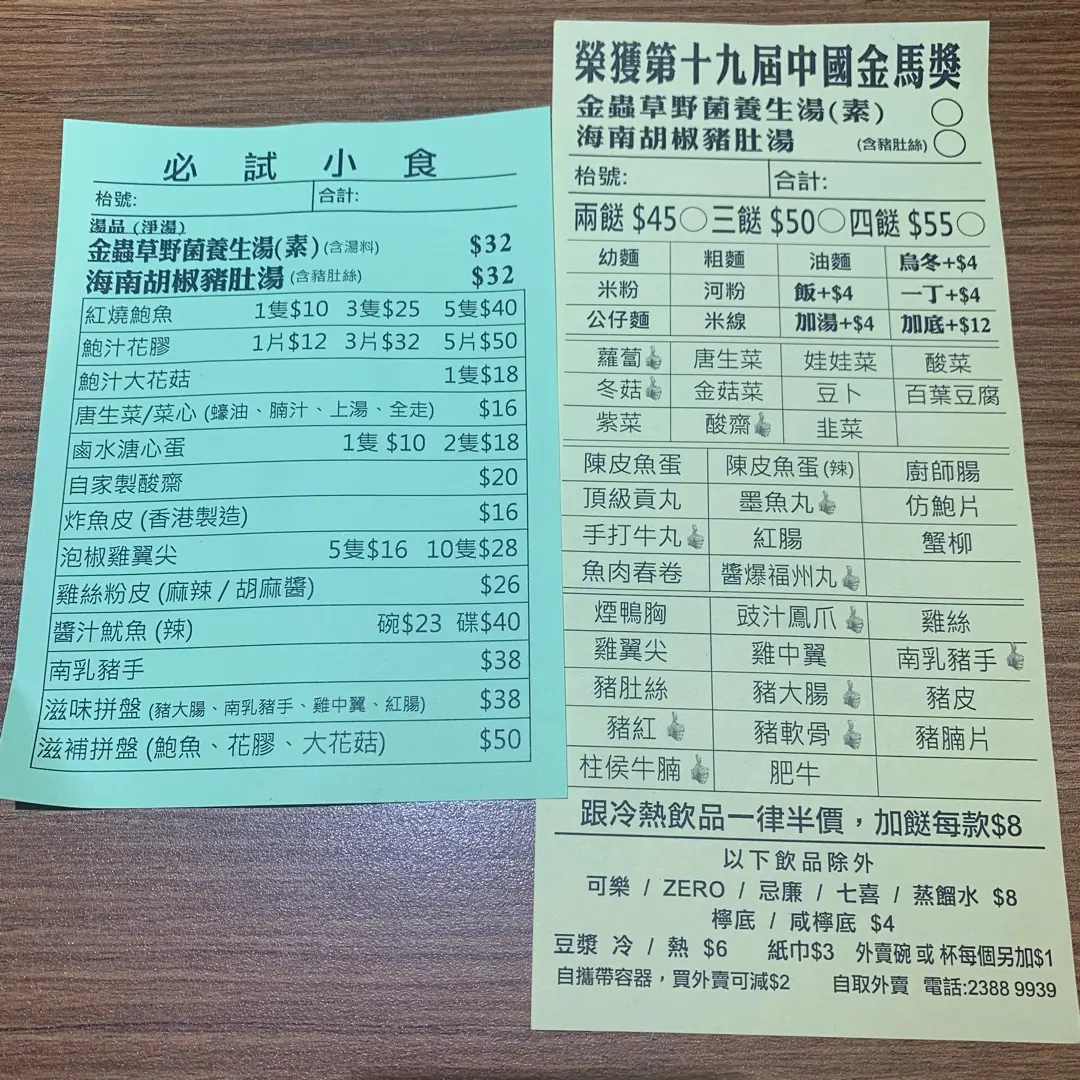 必試小食
枱號: 合計:
湯品 (淨湯)
金蟲草野菌養生湯(素) (含湯料) $32
海南胡椒豬肚湯 (含豬肚絲) $32
紅燒鮑魚 1隻$10 3隻$25 5隻$40
鮑汁花膠 1片$12 3片$32 5片$50
鮑汁大花菇 1隻$18
唐生菜/菜心 (蠔油、腩汁、上湯、全走) $16
鹵水溏心蛋 1隻 $10 2隻$18
自家製酸齋 $20
炸魚皮 (香港製造) $16
泡椒雞翼尖 5隻$16 10隻$28
雞絲粉皮 (麻辣 / 胡麻醬) $26
醬汁魷魚 (辣) 碗$23 碟$40
南乳豬手 $38
滋味拼盤 (豬大腸、南乳豬手、雞中翼、紅腸) $38
滋補拼盤 (鮑魚、花膠、大花菇) $50
榮獲第十九屆中國金馬獎
金蟲草野菌養生湯(素)
海南胡椒豬肚湯 (含豬肚絲)
枱號: 合計:
兩餸 $45 三餸 $50 四餸 $55
幼麵 粗麵 油麵 烏冬+$4
米粉 河粉 飯+$4 一丁+$4
公仔麵 米線 加湯+$4 加底+$12
蘿蔔 唐生菜 娃娃菜 酸菜
冬菇 金菇菜 豆卜 百葉豆腐
紫菜 酸齋 韭菜
陳皮魚蛋 陳皮魚蛋(辣) 廚師腸
頂級貢丸 墨魚丸 仿鮑片
手打牛丸 紅腸 蟹柳
魚肉春卷 醬爆福州丸
煙鴨胸 豉汁鳳爪 雞絲
雞翼尖 雞中翼 南乳豬手
豬肚絲 豬大腸 豬皮
豬紅 豬軟骨 豬腩片
柱侯牛腩 肥牛
跟冷熱飲品一律半價，加餸每款$8
以下飲品除外
可樂 / ZERO / 忌廉 / 七喜 / 蒸餾水 $8
檸底 / 咸檸底 $4
豆漿 冷 / 熱 $6 紙巾$3 外賣碗 或 杯每個另加$1
自攜帶容器，買外賣可減$2 自取外賣 電話:2388 9939